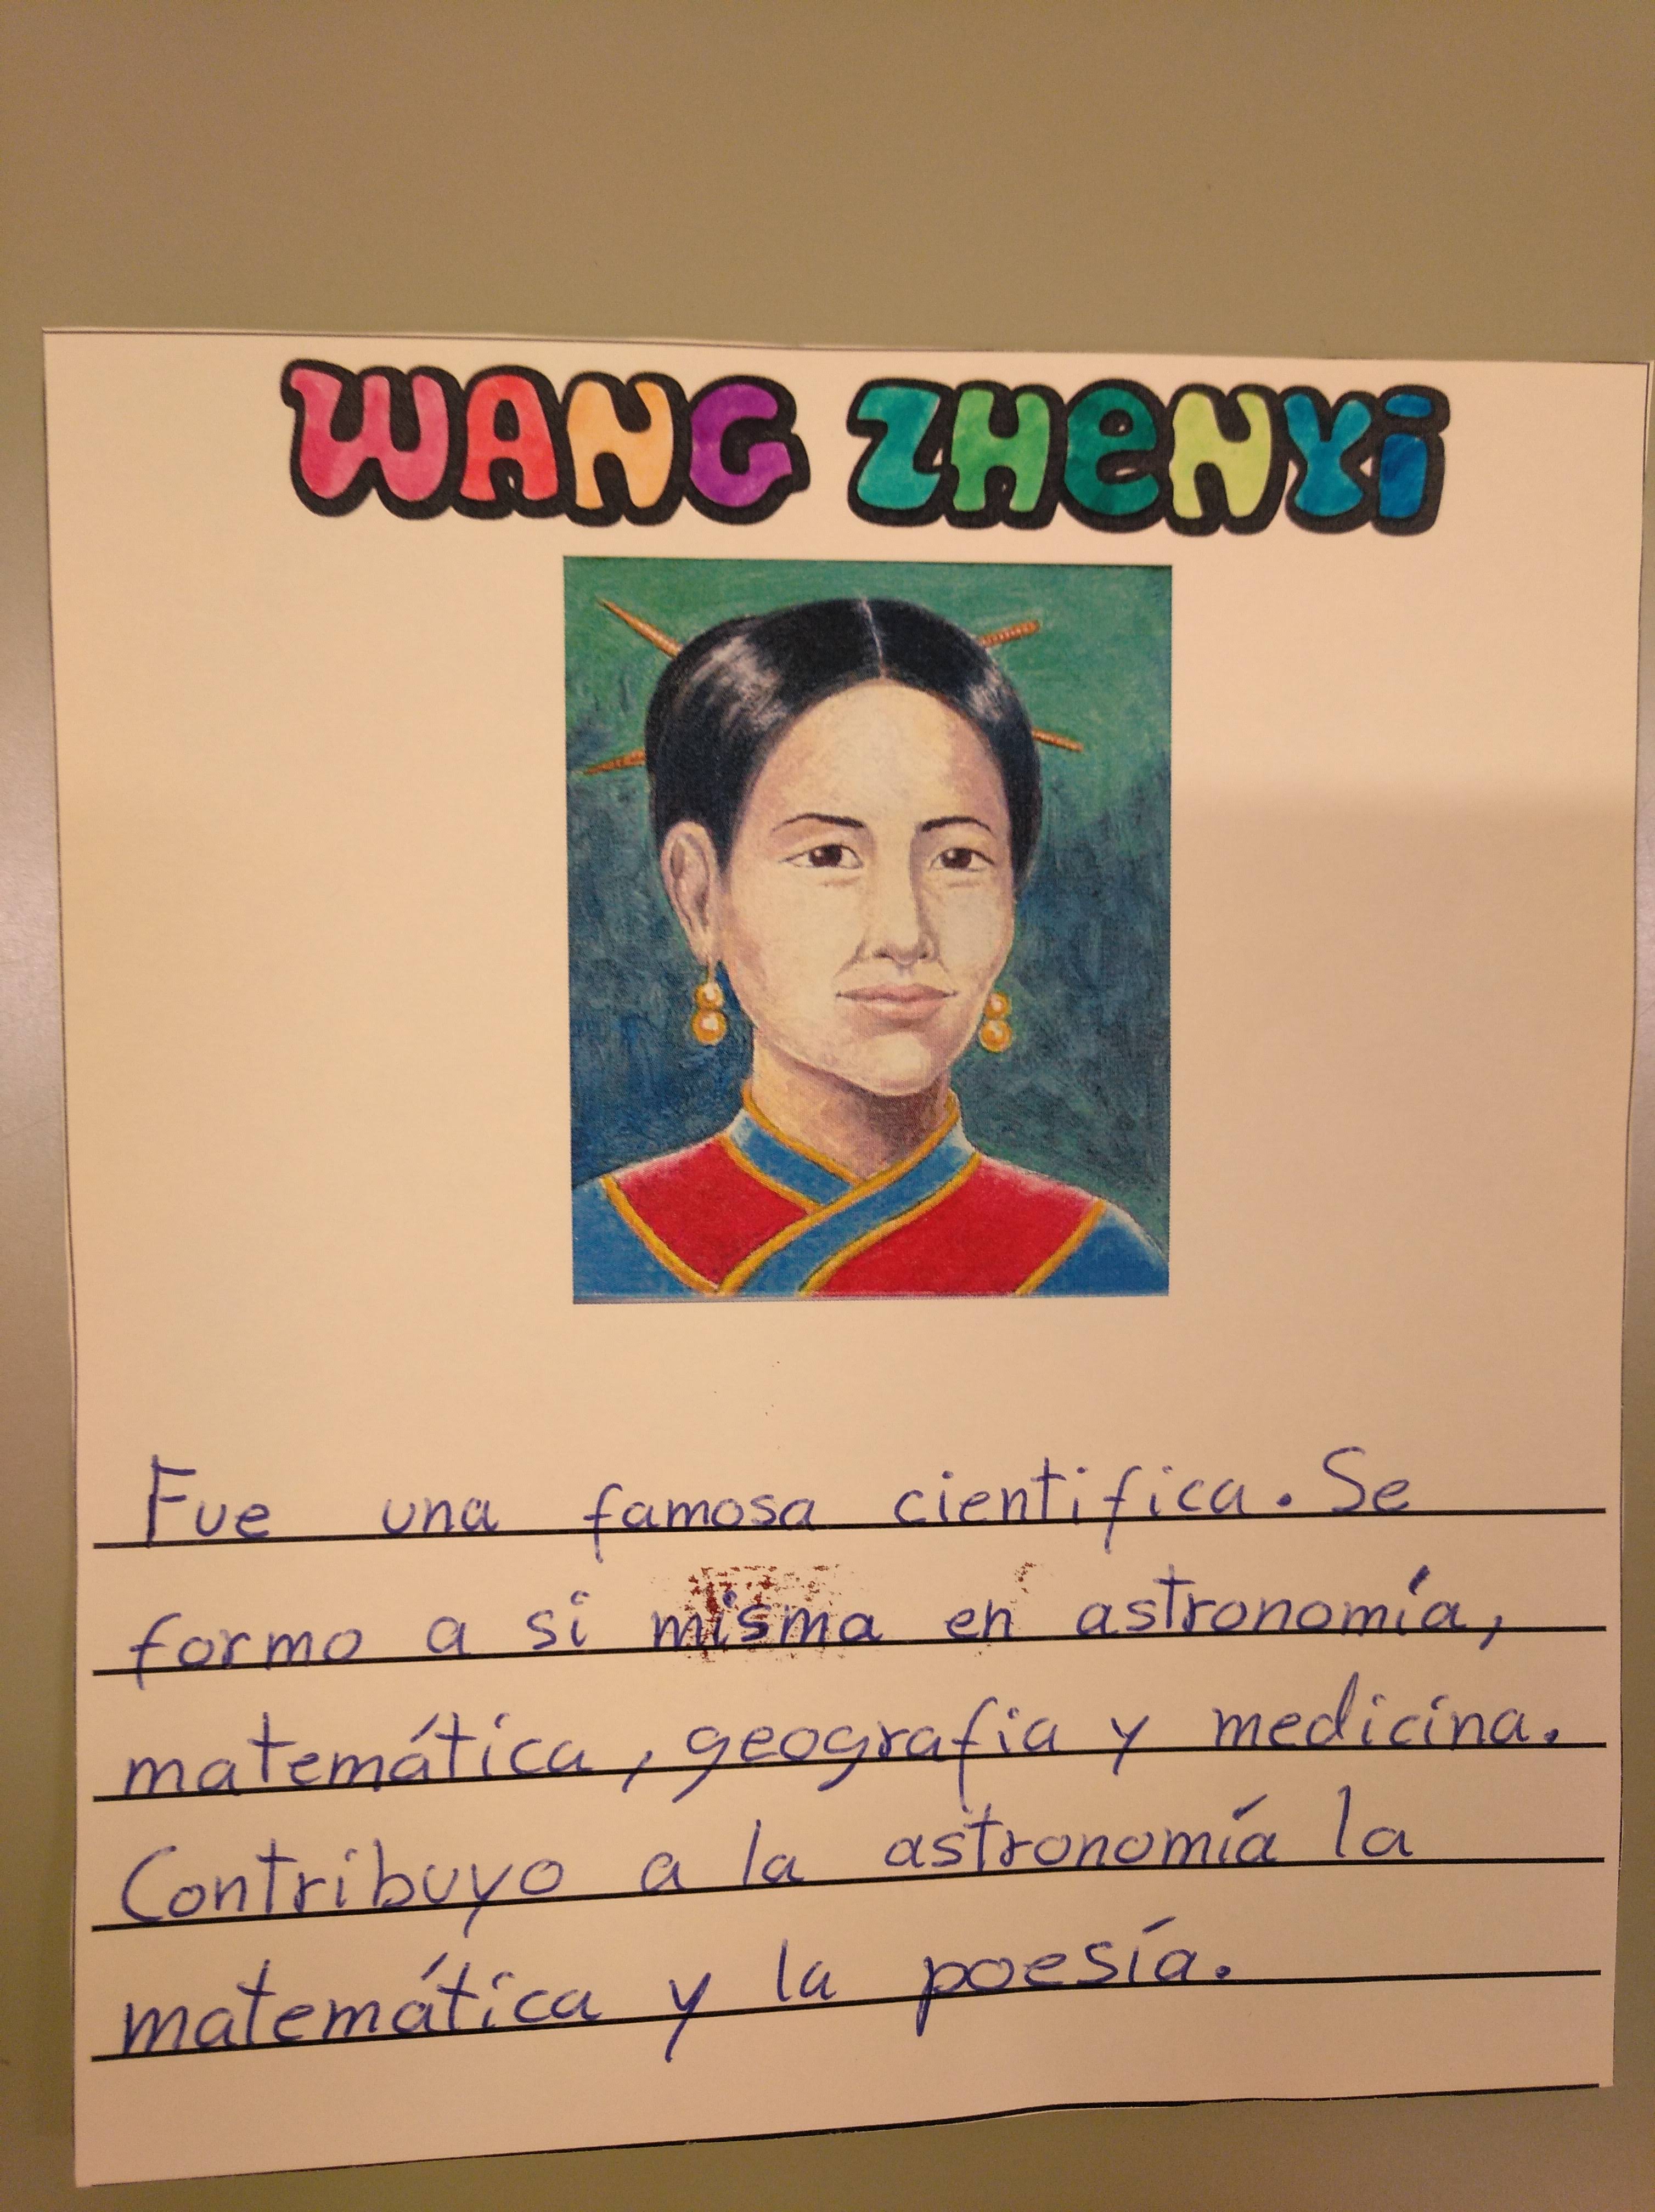 WANG ZHENYi
Fue una famosa cientifica. Se
formo a si misma en astronomía,
matemática, geografia y medicina.
Contribuyo a la astronomía la
matemática y la poesía.